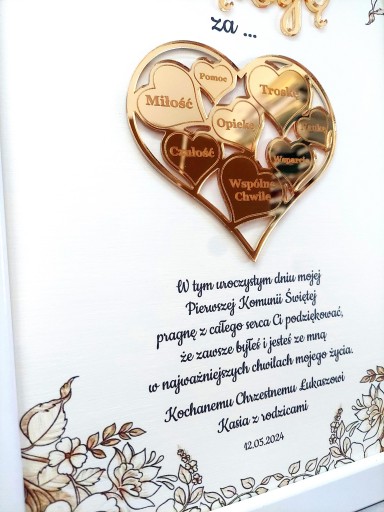 za ...
Pomoc
Miłość
Troskę
Opiekę
Czułość
Wsparcie
Wspólne
Chwile
W tym uroczystym dniu mojej
Pierwszej Komunii Świętej
pragnę z całego serca Ci podziękować,
że zawsze byłeś i jesteś ze mną
w najważniejszych chwilach mojego życia.
Kochanemu Chrzestnemu Łukaszowi
Kasia z rodzicami
12.05.2024